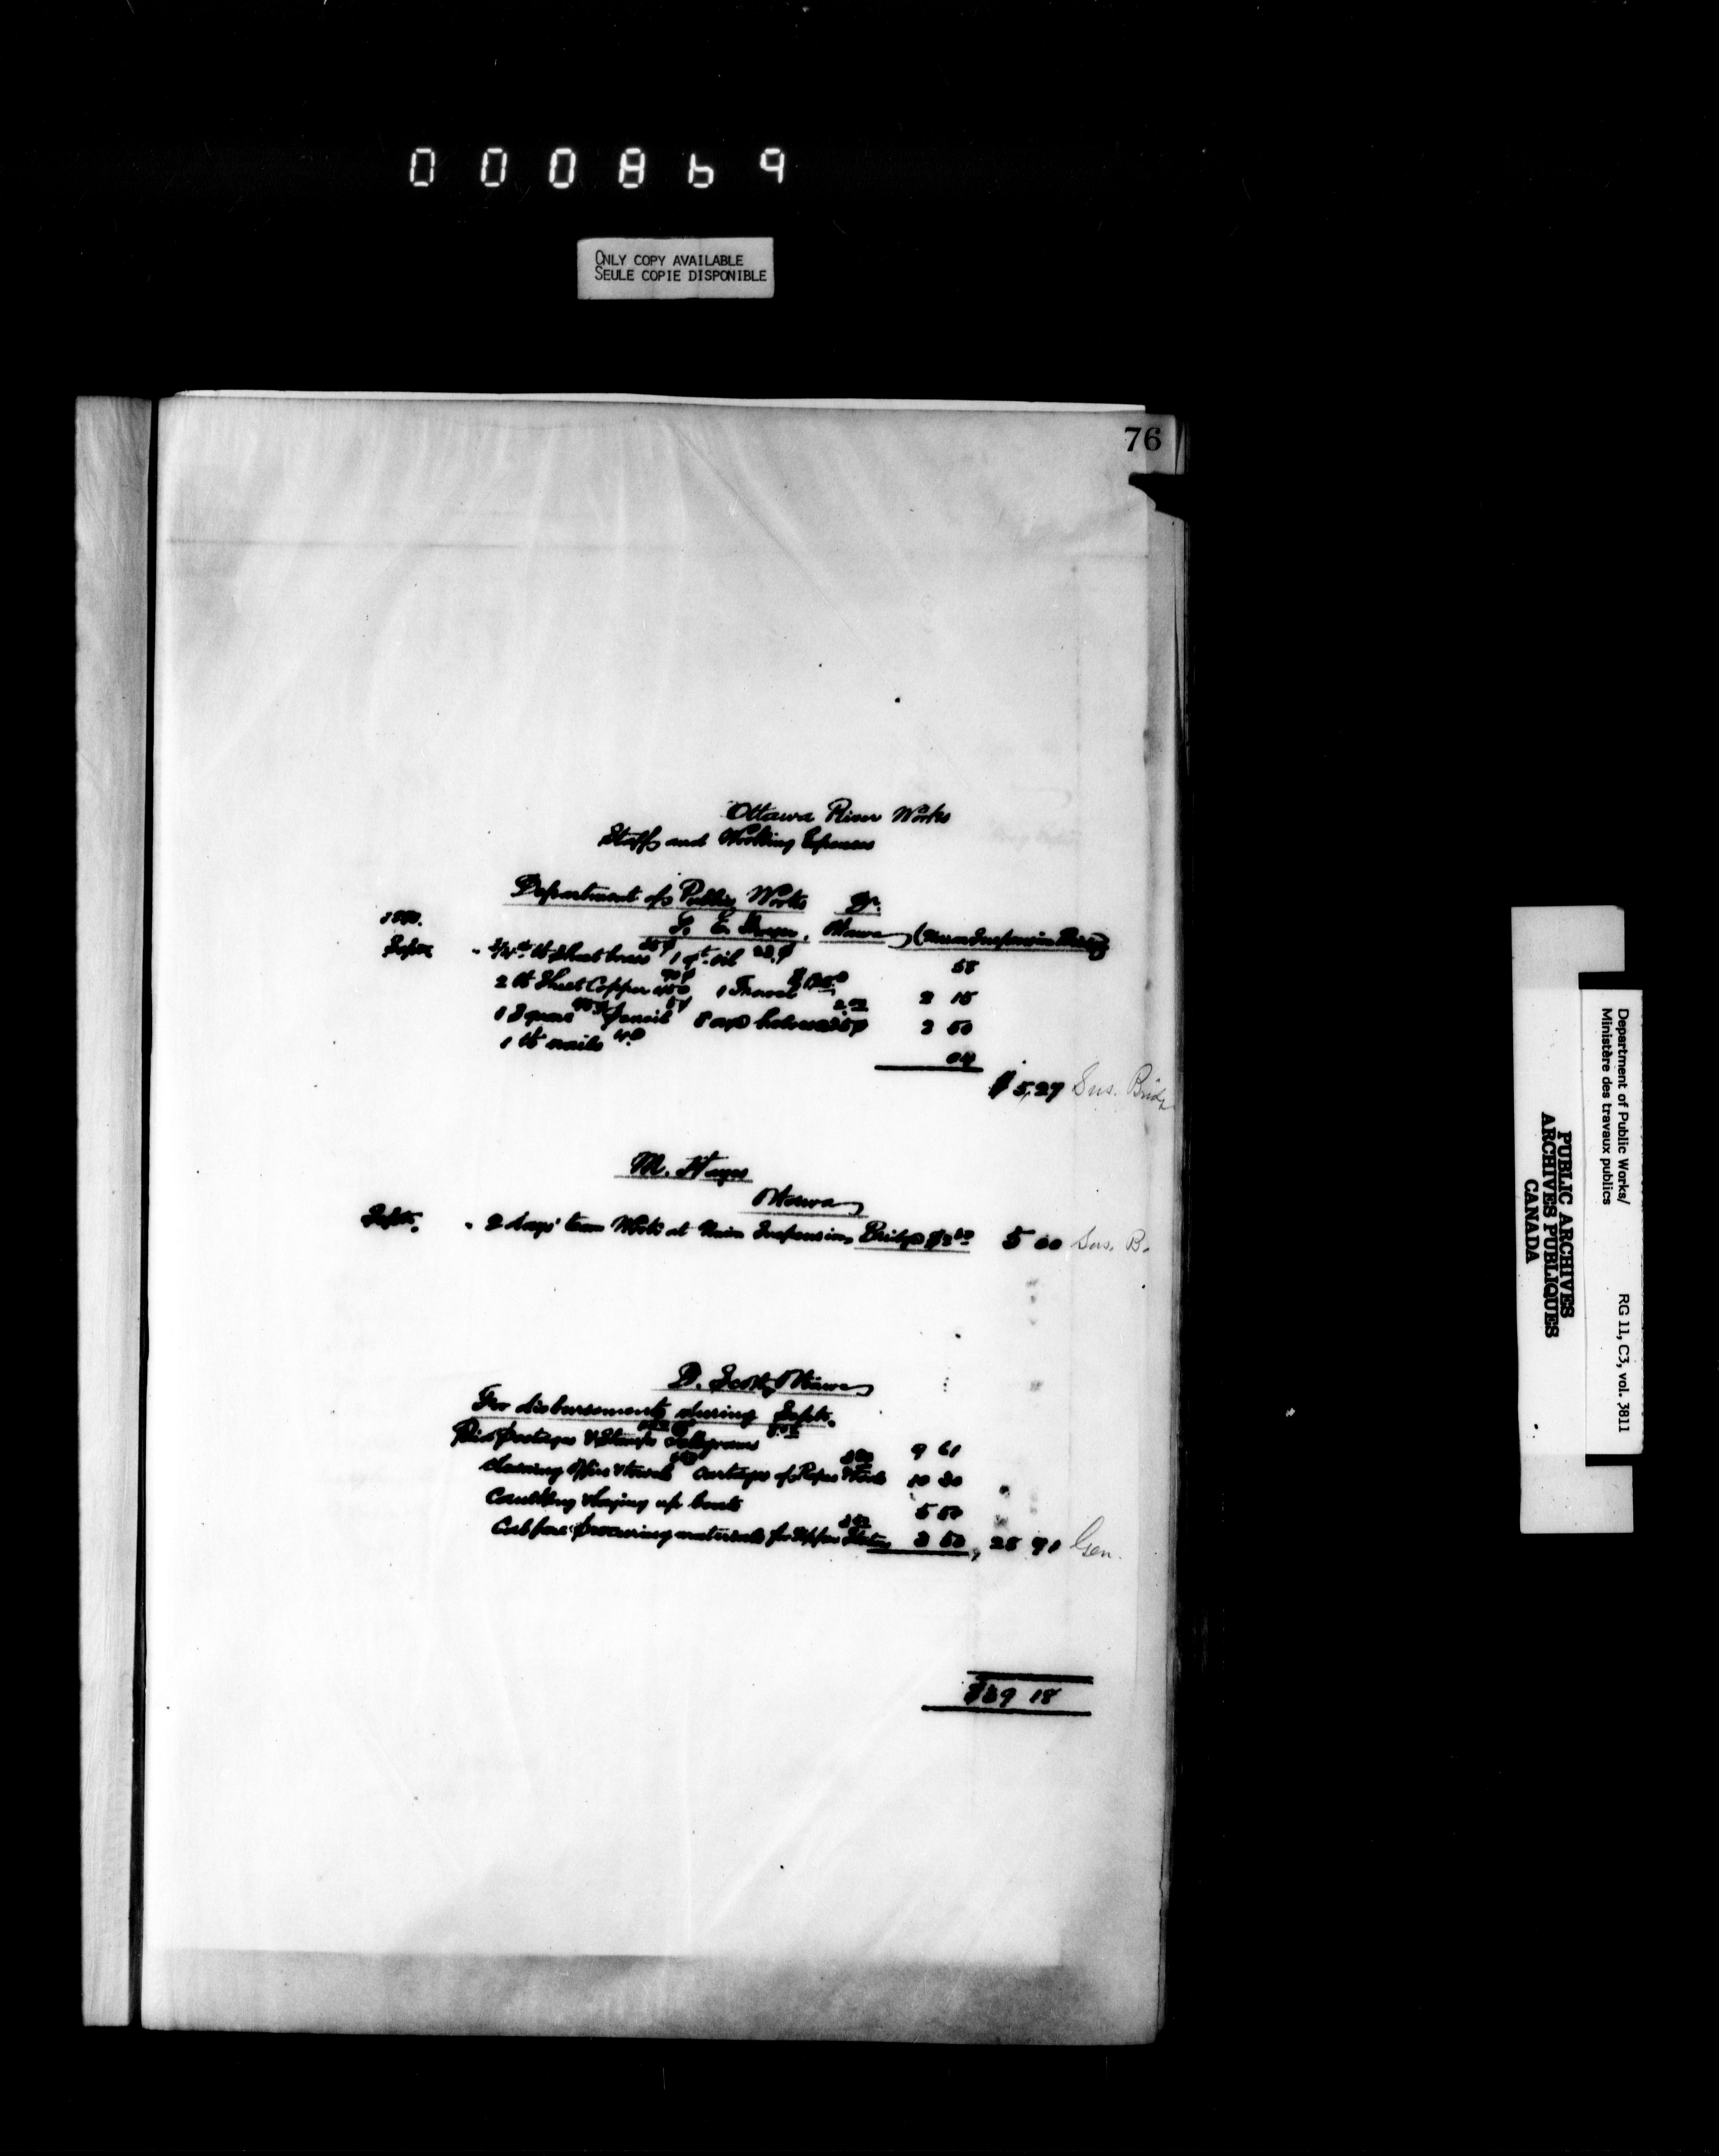 000869
ONLY COPY AVAILABLE
SEULE COPIE DISPONIBLE
76
Ottawa River Works
Staff and Working Expenses
Department of Public Works Dr.
1890.
E. Ottawa (Union Suspension Bridge)
Septr. " 3/4 lb Sheet brass 1 qt. oil 58
2 lb Sheet Copper 1 2 15
1 pencil 2 50
1 lb nails 04
$ 5,27 Sus. Bridge
M. Hayes
Ottawa
Septr. " 2 days' team Work at Union Suspension Bridge $2 50 5 00 Sus. B.
D. Scott, Ottawa
For disbursements during Septr.
Paid postages & Stamps Telegrams 9 61
Cleaning Office & towels Cartage of Ropes 10 30
Caulking & laying up boats 5 50
Cab fare procuring materials for Upper 3 50 28 91 Gen.
$39 18
Department of Public Works/
Ministère des travaux publics
RG 11, C3, vol. 3811
PUBLIC ARCHIVES
ARCHIVES PUBLIQUES
CANADA